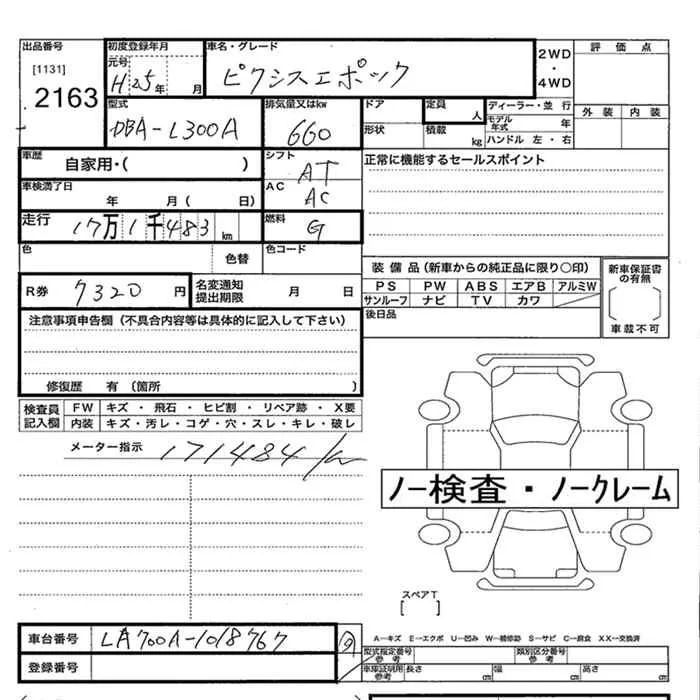 出品番号
[1131]
2163
初度登録年月
元号
H25年 月
車名・グレード
ピクシスエポック
2WD
・
4WD
評価点
外装 内装
型式
DBA-L300A
排気量又はkw
660
ドア
形状
定員
人
積載
kg
ディーラー・並行
モデル年式 年
ハンドル 左・右
車歴
自家用・( )
シフト
AT
正常に機能するセールスポイント
車検満了日
年 月( 日)
AC
AC
走行
17万1千483 km
燃料
G
色
色替
色コード
装備品(新車からの純正品に限り○印)
PS PW ABS エアB アルミW
サンルーフ ナビ TV カワ
新車保証書の有無
[ ]
車載不可
後日品
R券 7320 円
名変通知
提出期限
月 日
注意事項申告欄(不具合内容等は具体的に記入して下さい)
修復歴 有(箇所 )
検査員
記入欄
FW キズ・飛石・ヒビ割・リペア跡・X要
内装 キズ・汚レ・コゲ・穴・スレ・キレ・破レ
メーター指示
171484km
ノー検査・ノークレーム
スペアT
[ ]
車台番号 LA700A-1018767
登録番号
A―キズ E―エクボ U―凹み W―補修跡 S―サビ C―腐食 XX―交換済
型式指定番号
参考
類別区分番号
参考
車庫証明用
参考
長さ cm 幅 cm 高さ cm